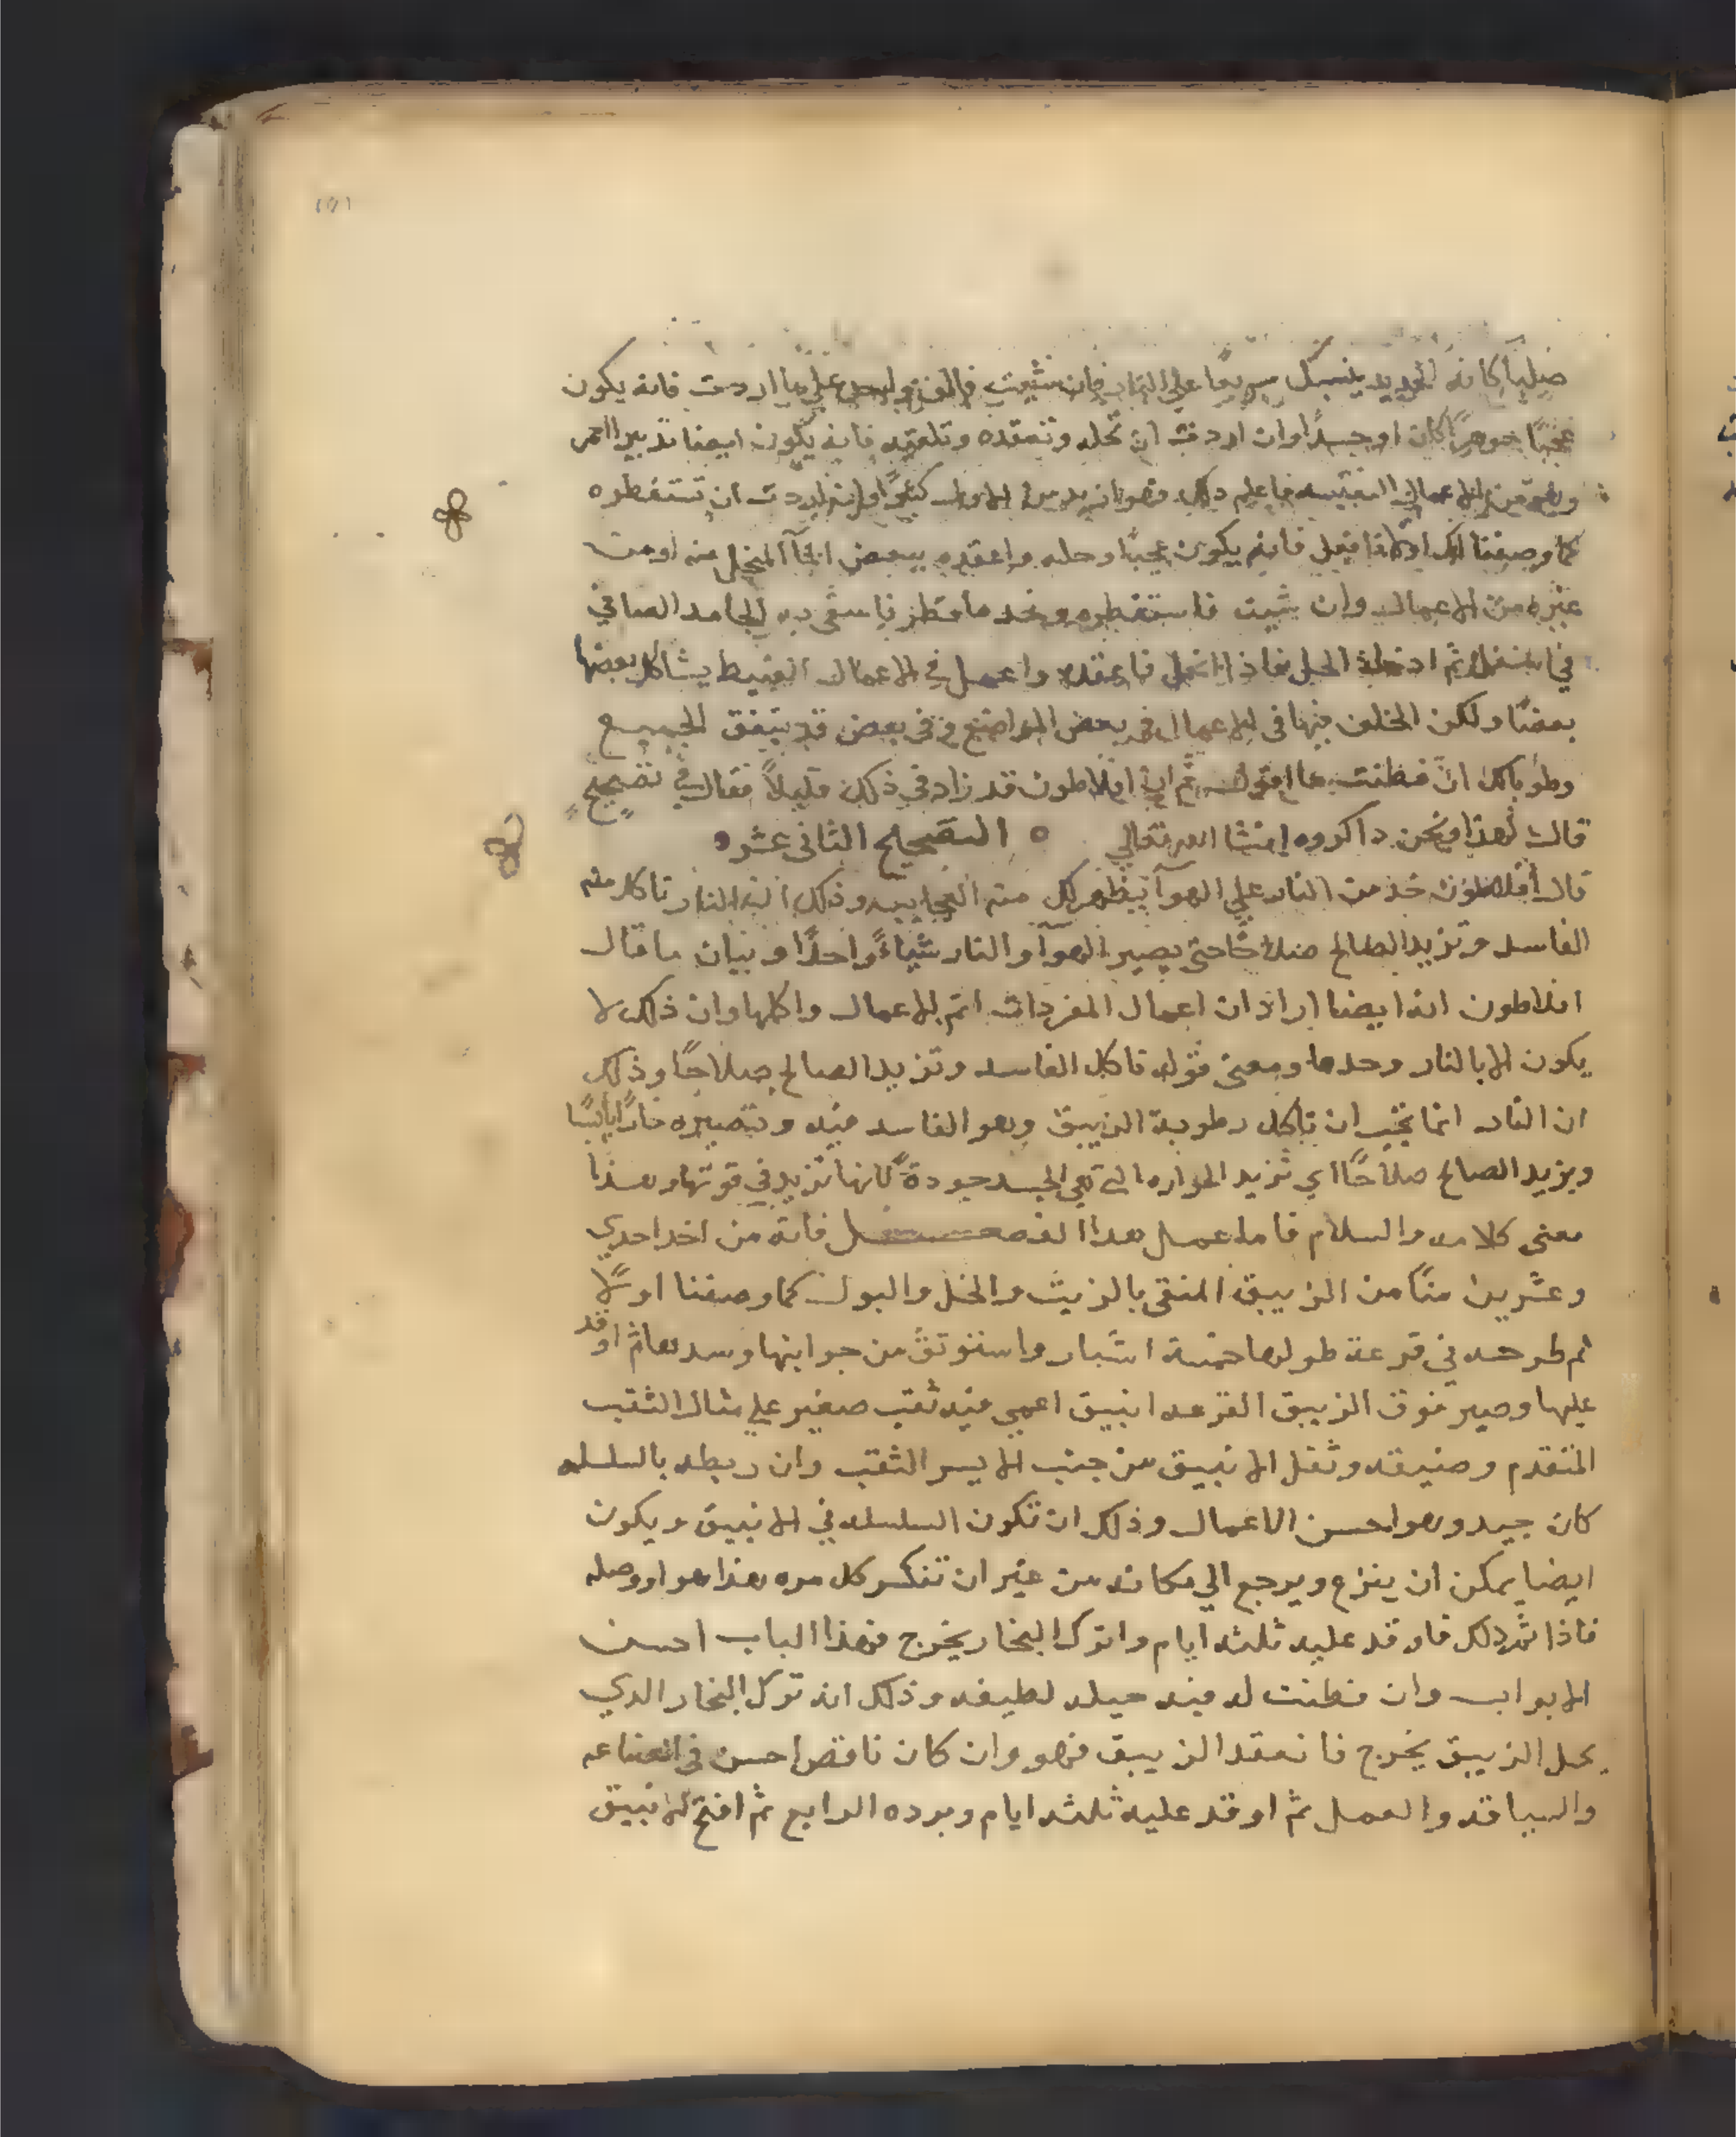 صلباً كانه الحديد ينسبك سريعًا علي النار فان شيت فالق واحد علي ما اردت فانه يكون
عجبًا جوهرًا كان او جسدًا وان اردت ان تحله وتعقده وتلقيه فانه يكون ايضا تدبير الحمر
وهو من الاعمال النفيسه فاعلم ذلك فهو ازيد من الاول كثيرًا وان اردت ان تستقطره
كما وصفنا لك اولا فافعل فانه يكون عجبًا وحله واعقده ببعض المآ المنحل منه او من
غيره من الاعمال وان شيت فاستقطره وخد ما قطر فاسقى به الجامد الصافي
في اسفل ثم ادخله الحل فاذا انحل فاعقده واعمل في الاعمال الغبيط يشاكل بعضها
بعضًا ولكن الخلف فيها في الاعمال في بعض المواضع وفي بعض قد يتفق الجميع
وطوباك ان فطنت ما اقول ثم ان افلاطون قد زاد في ذلك قليلاً فقال في تصحيح
قال لهذا ونحن داكروه انشا الله تعالي ٥ التصحيح الثاني عشر
قال أفلاطون خذ من النار علي الهوآ يظهر لك منه العجايب وذلك ان النار تاكل منه
الفاسد وتزيد الصالح صلاحًا حتى يصير الهوآ والنار شياءً واحدًا وبيان ما قال
افلاطون انه ايضا اراد ان اعمال المفردات اتم الاعمال واكملها وان ذلك لا
يكون الا بالنار وحدها ومعنى قوله تاكل الفاسد وتزيد الصالح صلاحًا وذلك
ان النار انما تجب ان تاكل رطوبة الزيبق وهو الفاسد فيه وتصيره حارًا يابسًا
ويزيد الصالح صلاحًا اي تزيد الحراره التي هي الجسد جودةً كانها تزيد في قوتها وهذا
معنى كلامه والسلام فاما عمل هدا الفصل فانه من اخد احدي
وعشرين منًا من الزيبق المنقى بالزيت والخل والبول كما وصفنا اولًا
ثم طرحه في قرعة طولها خمسة اشبار واستوثق من جوابنها وسدها ثم اوقد
عليها وصير فوق الزيبق القرعه انبيق اعمي فيه ثقب صغير علي مثال الثقب
المتقدم وضيقه وثقل الانبيق من جنب الايسر الثقب وان ربطه بالسلسله
كان جيد وهو احسن الاعمال وذلك ان تكون السلسله في الانبيق ويكون
ايضا يمكن ان ينزع ويرجع الي مكانه من غير ان تنكسر كل مره هذا هو اووصله
فاذا تم ذلك فاوقد عليه ثلثه ايام واترك البخار يخرج فهذا الباب احسن
الابواب وان فطنت له فيه حيله لطيفه وذلك انه ترك البخار الدي
يحل الزيبق يخرج فانعقد الزيبق فهو وان كان ناقص احسن في الصناعه
والسياقه والعمل ثم اوقد عليه ثلثه ايام وبرده الرابع ثم افتح الانبيق